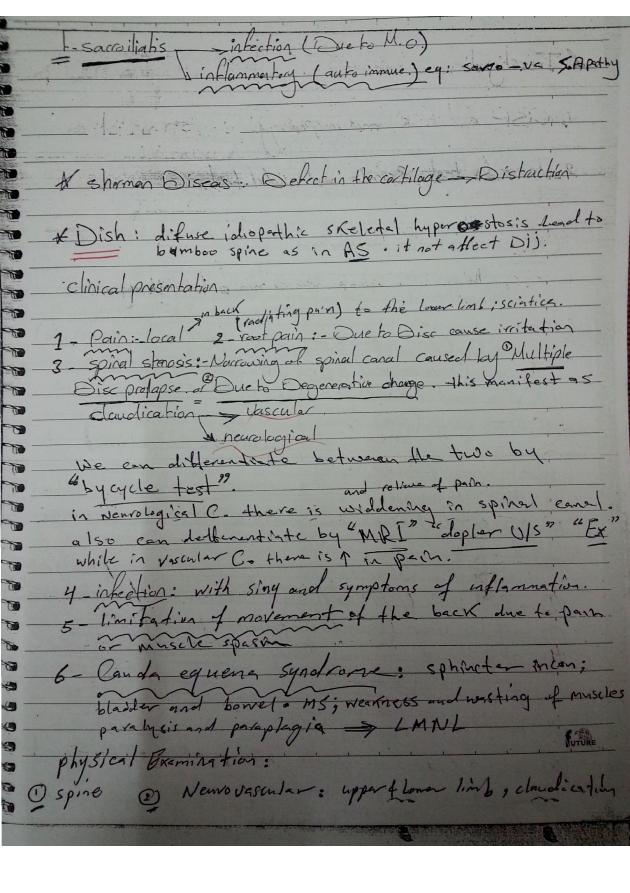 F- sacroiliatis → infection (Due to M.O)
↳ inflammatory (auto immue.) eg: sero -va S.Apathy
* sharman Diseas :. Defect in the cartilage → Distruction
* Dish : difuse idiopathic skeletal hyperostosis Lead to
bamboo spine as in AS . it not affect Dij.
clinical presentation:
in back (radiating pain) to the lower limb ; sciatica.
1 - Pain:- local 2 - root pain :- Due to Disc cause irritation
3 - spinal stenosis:- Narrowing of spinal canal caused by ① Multiple
Disc prolapse. ② Due to Degenerative change. this manifest as
claudication → vascular
↘ neurological
We can differentiate between the two by
"bycycle test".
and relieve of pain.
in Neurological C. there is widdening in spinal canal.
also can defferentiate by "MRI" "dopler U/S" "Ex"
while in vascular C. there is ↑ in pain.
4 - infection: with sing and symptoms of inflammation.
5 - limitation of movement of the back due to pain
or muscle spasm
6 - Cauda equena syndrome: sphincter incon;
bladder and bowel. MS; weakness and wasting of muscles
paralysis and paraplagia ⇒ LMNL
physical Examination:
① spine ② Neurovascular: upper & lower limb, claudication
FUTURE